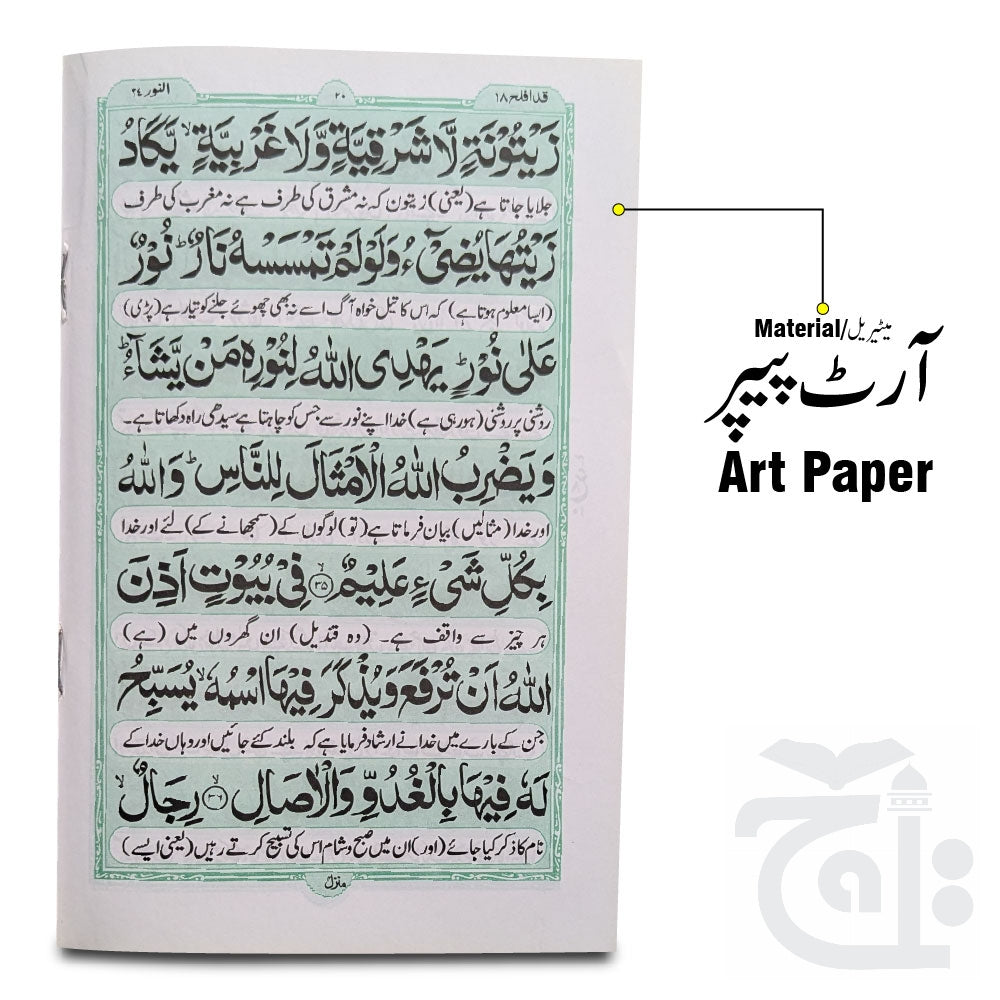 قد افلح ١٨
٢٠
النور ٢٤
زَيْتُوْنَةٍ لَّا شَرْقِيَّةٍ وَّلَا غَرْبِيَّةٍ ۙ يَّكَادُ
جلایا جاتا ہے (یعنی) زیتون کہ نہ مشرق کی طرف ہے نہ مغرب کی طرف
زَيْتُهَا يُضِىْٓءُ وَلَوْ لَمْ تَمْسَسْهُ نَارٌ ؕ نُوْرٌ
(ایسا معلوم ہوتا ہے) کہ اس کا تیل خواہ آگ اسے نہ بھی چھوئے جلنے کو تیار ہے (بڑی)
عَلٰى نُوْرٍ ؕ يَهْدِى اللّٰهُ لِنُوْرِهٖ مَنْ يَّشَآءُ ؕ
روشنی پر روشنی (ہو رہی ہے) خدا اپنے نور سے جس کو چاہتا ہے سیدھی راہ دکھاتا ہے۔
وَيَضْرِبُ اللّٰهُ الْاَمْثَالَ لِلنَّاسِ ؕ وَاللّٰهُ
اور خدا (مثالیں) بیان فرماتا ہے (تو) لوگوں کے (سمجھانے کے) لئے اور خدا
بِكُلِّ شَىْءٍ عَلِيْمٌ ۙ ٣٥ فِىْ بُيُوْتٍ اَذِنَ
ہر چیز سے واقف ہے۔ (وہ قندیل) ان گھروں میں (ہے)
اللّٰهُ اَنْ تُرْفَعَ وَيُذْكَرَ فِيْهَا اسْمُهٗ ۙ يُسَبِّحُ
جن کے بارے میں خدا نے ارشاد فرمایا ہے کہ بلند کئے جائیں اور وہاں خدا کے
لَهٗ فِيْهَا بِالْغُدُوِّ وَالْاٰصَالِ ۙ ٣٦ رِجَالٌ ۙ
نام کا ذکر کیا جائے (اور) ان میں صبح و شام اس کی تسبیح کرتے رہیں (یعنی ایسے)
منزل
Material/میٹیریل
آرٹ پیپر
Art Paper